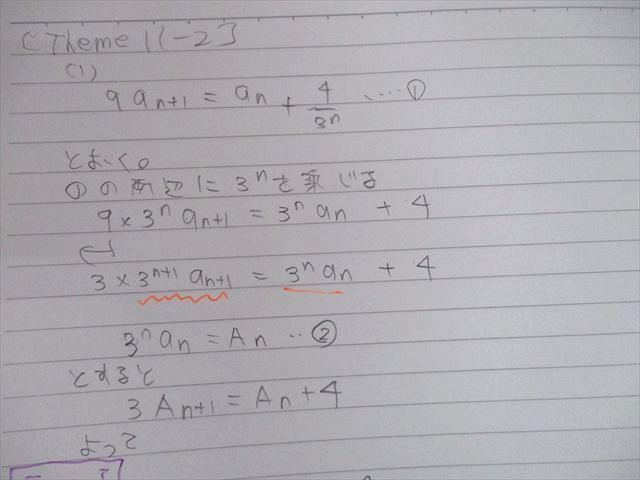 [Theme 11-2]
(1)
9a_{n+1} = a_n + 4/3^n ……①
とおく。
①の両辺に3^nを乗じる
9×3^n a_{n+1} = 3^n a_n + 4
↔
3×3^{n+1} a_{n+1} = 3^n a_n + 4
3^n a_n = A_n …②
とすると
3A_{n+1} = A_n + 4
よって